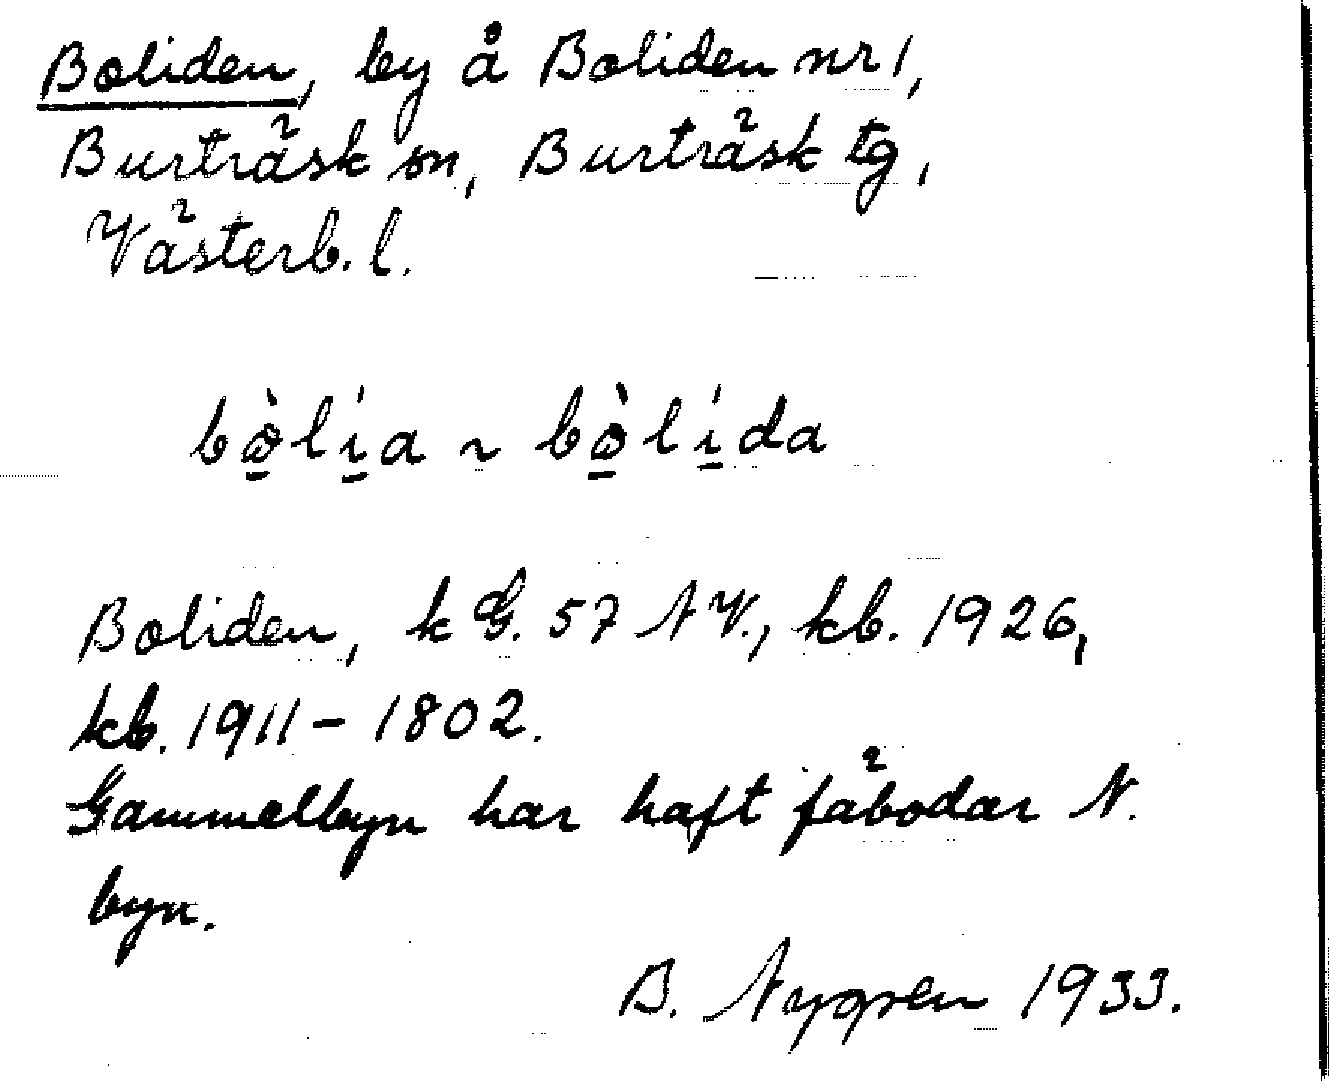 Boliden, by å Boliden nr 1,
Burträsk sn, Burträsk tg,
Västerb. l.
bò̱lí̱a ~ bò̱lí̱da
Boliden, k G. 57 NV., kb. 1926,
kb. 1911 – 1802.
Gammelbyn har haft fäbodar N.
byn.
B. Nygren 1933.